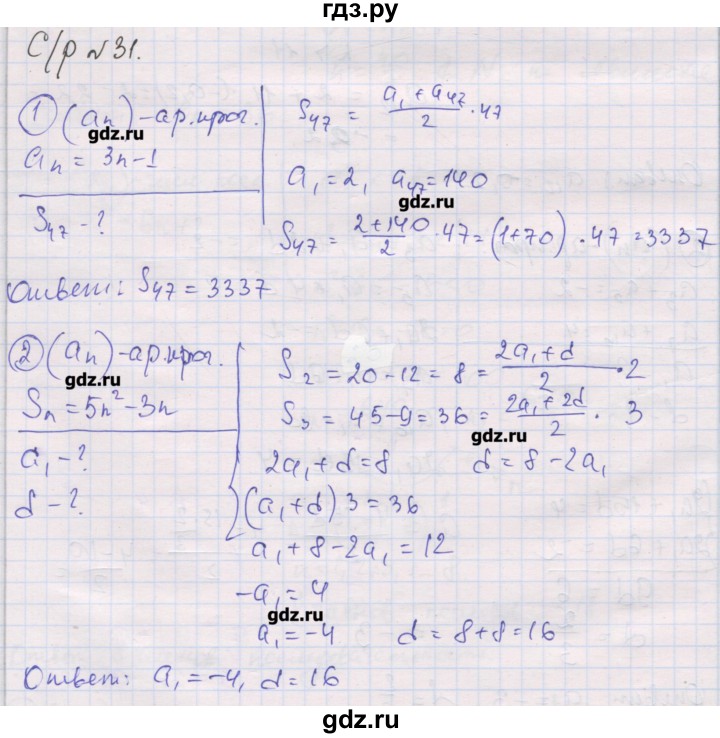 гдз.ру
С/р №31.
① (aₙ) – ар. прог.
gdz.ru
aₙ = 3n – 1
S₄₇ – ?
S₄₇ = (a₁ + a₄₇)/2 · 47
a₁ = 2, a₄₇ = 140
gdz.ru
S₄₇ = (2 + 140)/2 · 47 = (1 + 70) · 47 = 3337
Ответ: S₄₇ = 3337
② (aₙ) – ар. прог.
gdz.ru
Sₙ = 5n² – 3n
a₁ – ?
d – ?
S₂ = 20 – 12 = 8 = (2a₁ + d)/2 · 2
S₃ = 45 – 9 = 36 = (2a₁ + 2d)/2 · 3
gdz.ru
2a₁ + d = 8 d = 8 – 2a₁
(a₁ + d) 3 = 36
a₁ + 8 – 2a₁ = 12
–a₁ = 4
gdz.ru
a₁ = –4 d = 8 + 8 = 16
Ответ: a₁ = –4, d = 16
gdz.ru